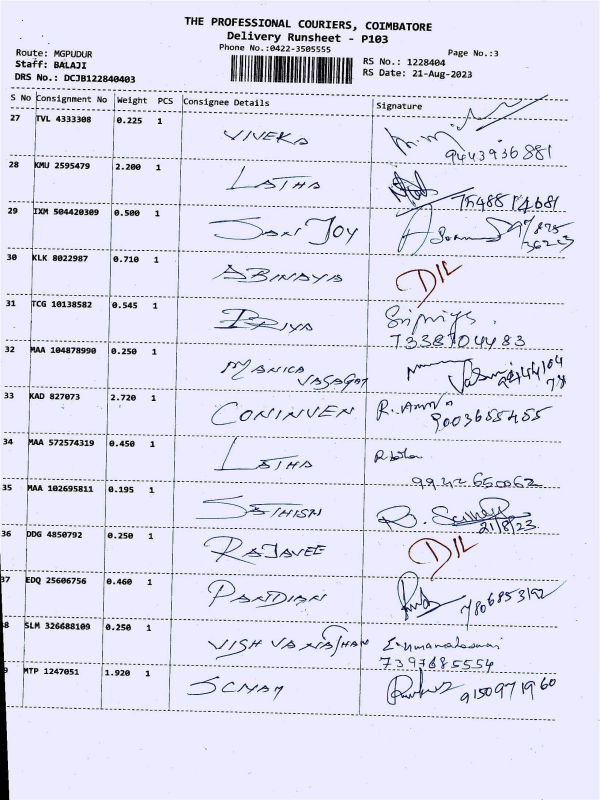 THE PROFESSIONAL COURIERS, COIMBATORE
Delivery Runsheet - P103
Phone No.:0422-3505555
Page No.:3
Route: MGPUDUR
Staff: BALAJI
DRS No.: DCJB122840403
RS No.: 1228404
RS Date: 21-Aug-2023
S No Consignment No Weight PCS Consignee Details Signature
27 TVL 4333308 0.225 1
VIVEKA
9443936881
28 KMU 2595479 2.200 1
LATHA
29 IXM 504420309 0.500 1
JOY
30 KLK 8022987 0.710 1
ABINAYA D/L
31 TCG 10138582 0.545 1
PRIYA
7338704483
32 MAA 104878990 0.250 1
MANICA
VASAGAM
33 KAD 827073 2.720 1
CONINVEN R.
9003685485
34 MAA 572574319 0.450 1
LATHA
35 MAA 102695811 0.195 1
SATHISH R.
21/8/23
36 DDG 4850792 0.250 1
RAJAVEE D/L
37 EDQ 25606756 0.460 1
PANDIAN 7806853192
8 SLM 326688109 0.250 1
VISHVANATHAN
7397685554
9 MTP 1247051 1.920 1
9150971960